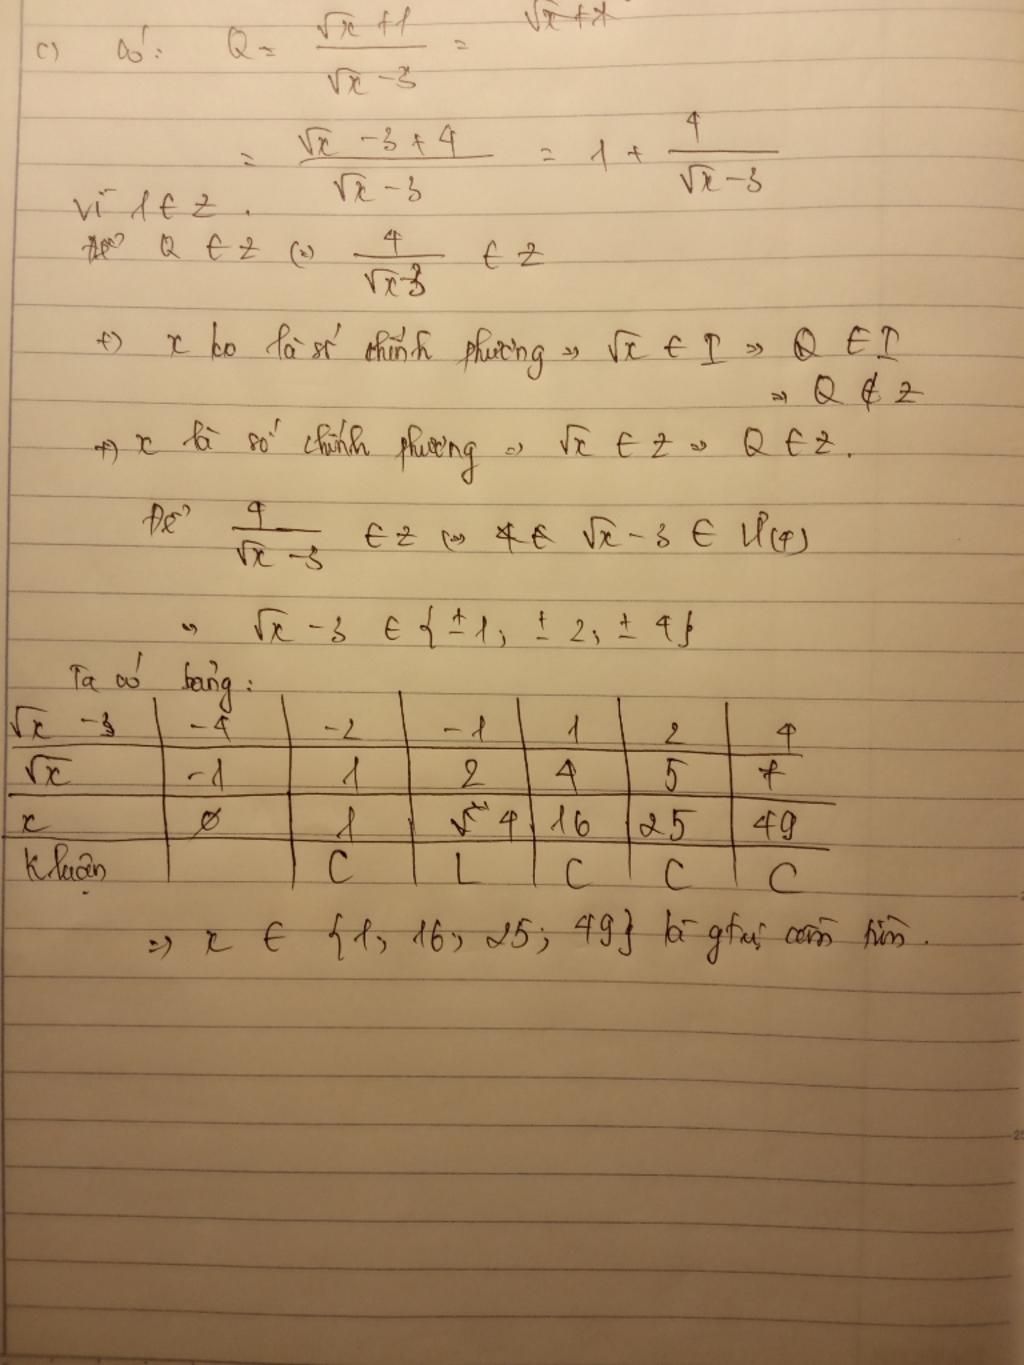 c) Có: Q = (√x + 1)/(√x - 3) =
= (√x - 3 + 4)/(√x - 3) = 1 + 4/(√x - 3)
Vì 1 ∈ Z.
Để Q ∈ Z (=) 4/(√x - 3) ∈ Z
+) x ko là số chính phương => √x ∈ I => Q ∈ I
=> Q ∉ Z
+) x là số chính phương => √x ∈ Z => Q ∈ Z.
Để 4/(√x - 3) ∈ Z (=) √x - 3 ∈ Ư(4)
=> √x - 3 ∈ {±1; ±2; ±4}
Ta có bảng:
√x - 3 | -4 | -2 | -1 | 1 | 2 | 4
√x | -1 | 1 | 2 | 4 | 5 | 7
x | ∅ | 1 | 4 | 16 | 25 | 49
Kluận | | C | L | C | C | C
=> x ∈ {1; 16; 25; 49} là gtrị cần tìm.